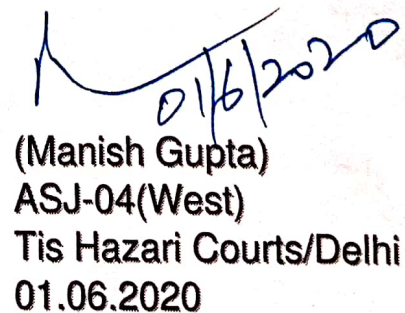 01/6/2020
(Manish Gupta)
ASJ-04(West)
Tis Hazari Courts/Delhi
01.06.2020